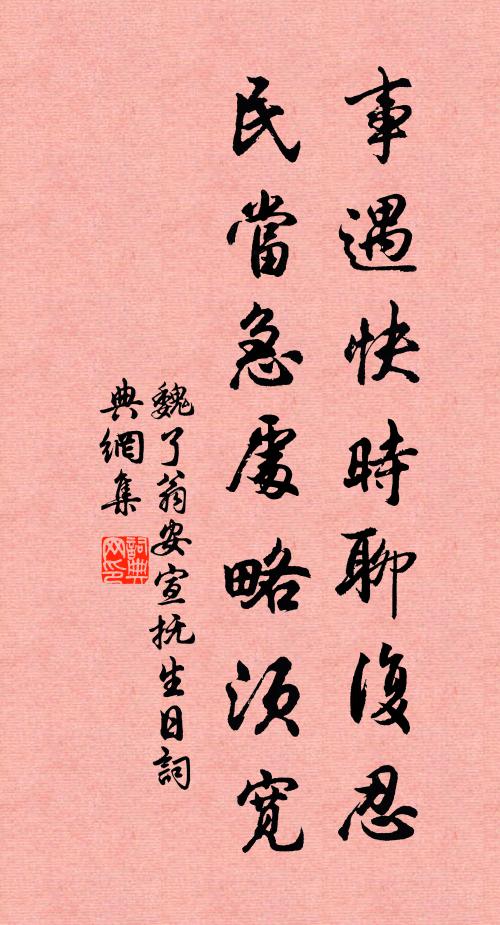 事遇快時聊復忍
民當急處略須寬
魏了翁安宣抚生日詞
典網集
詞典網印